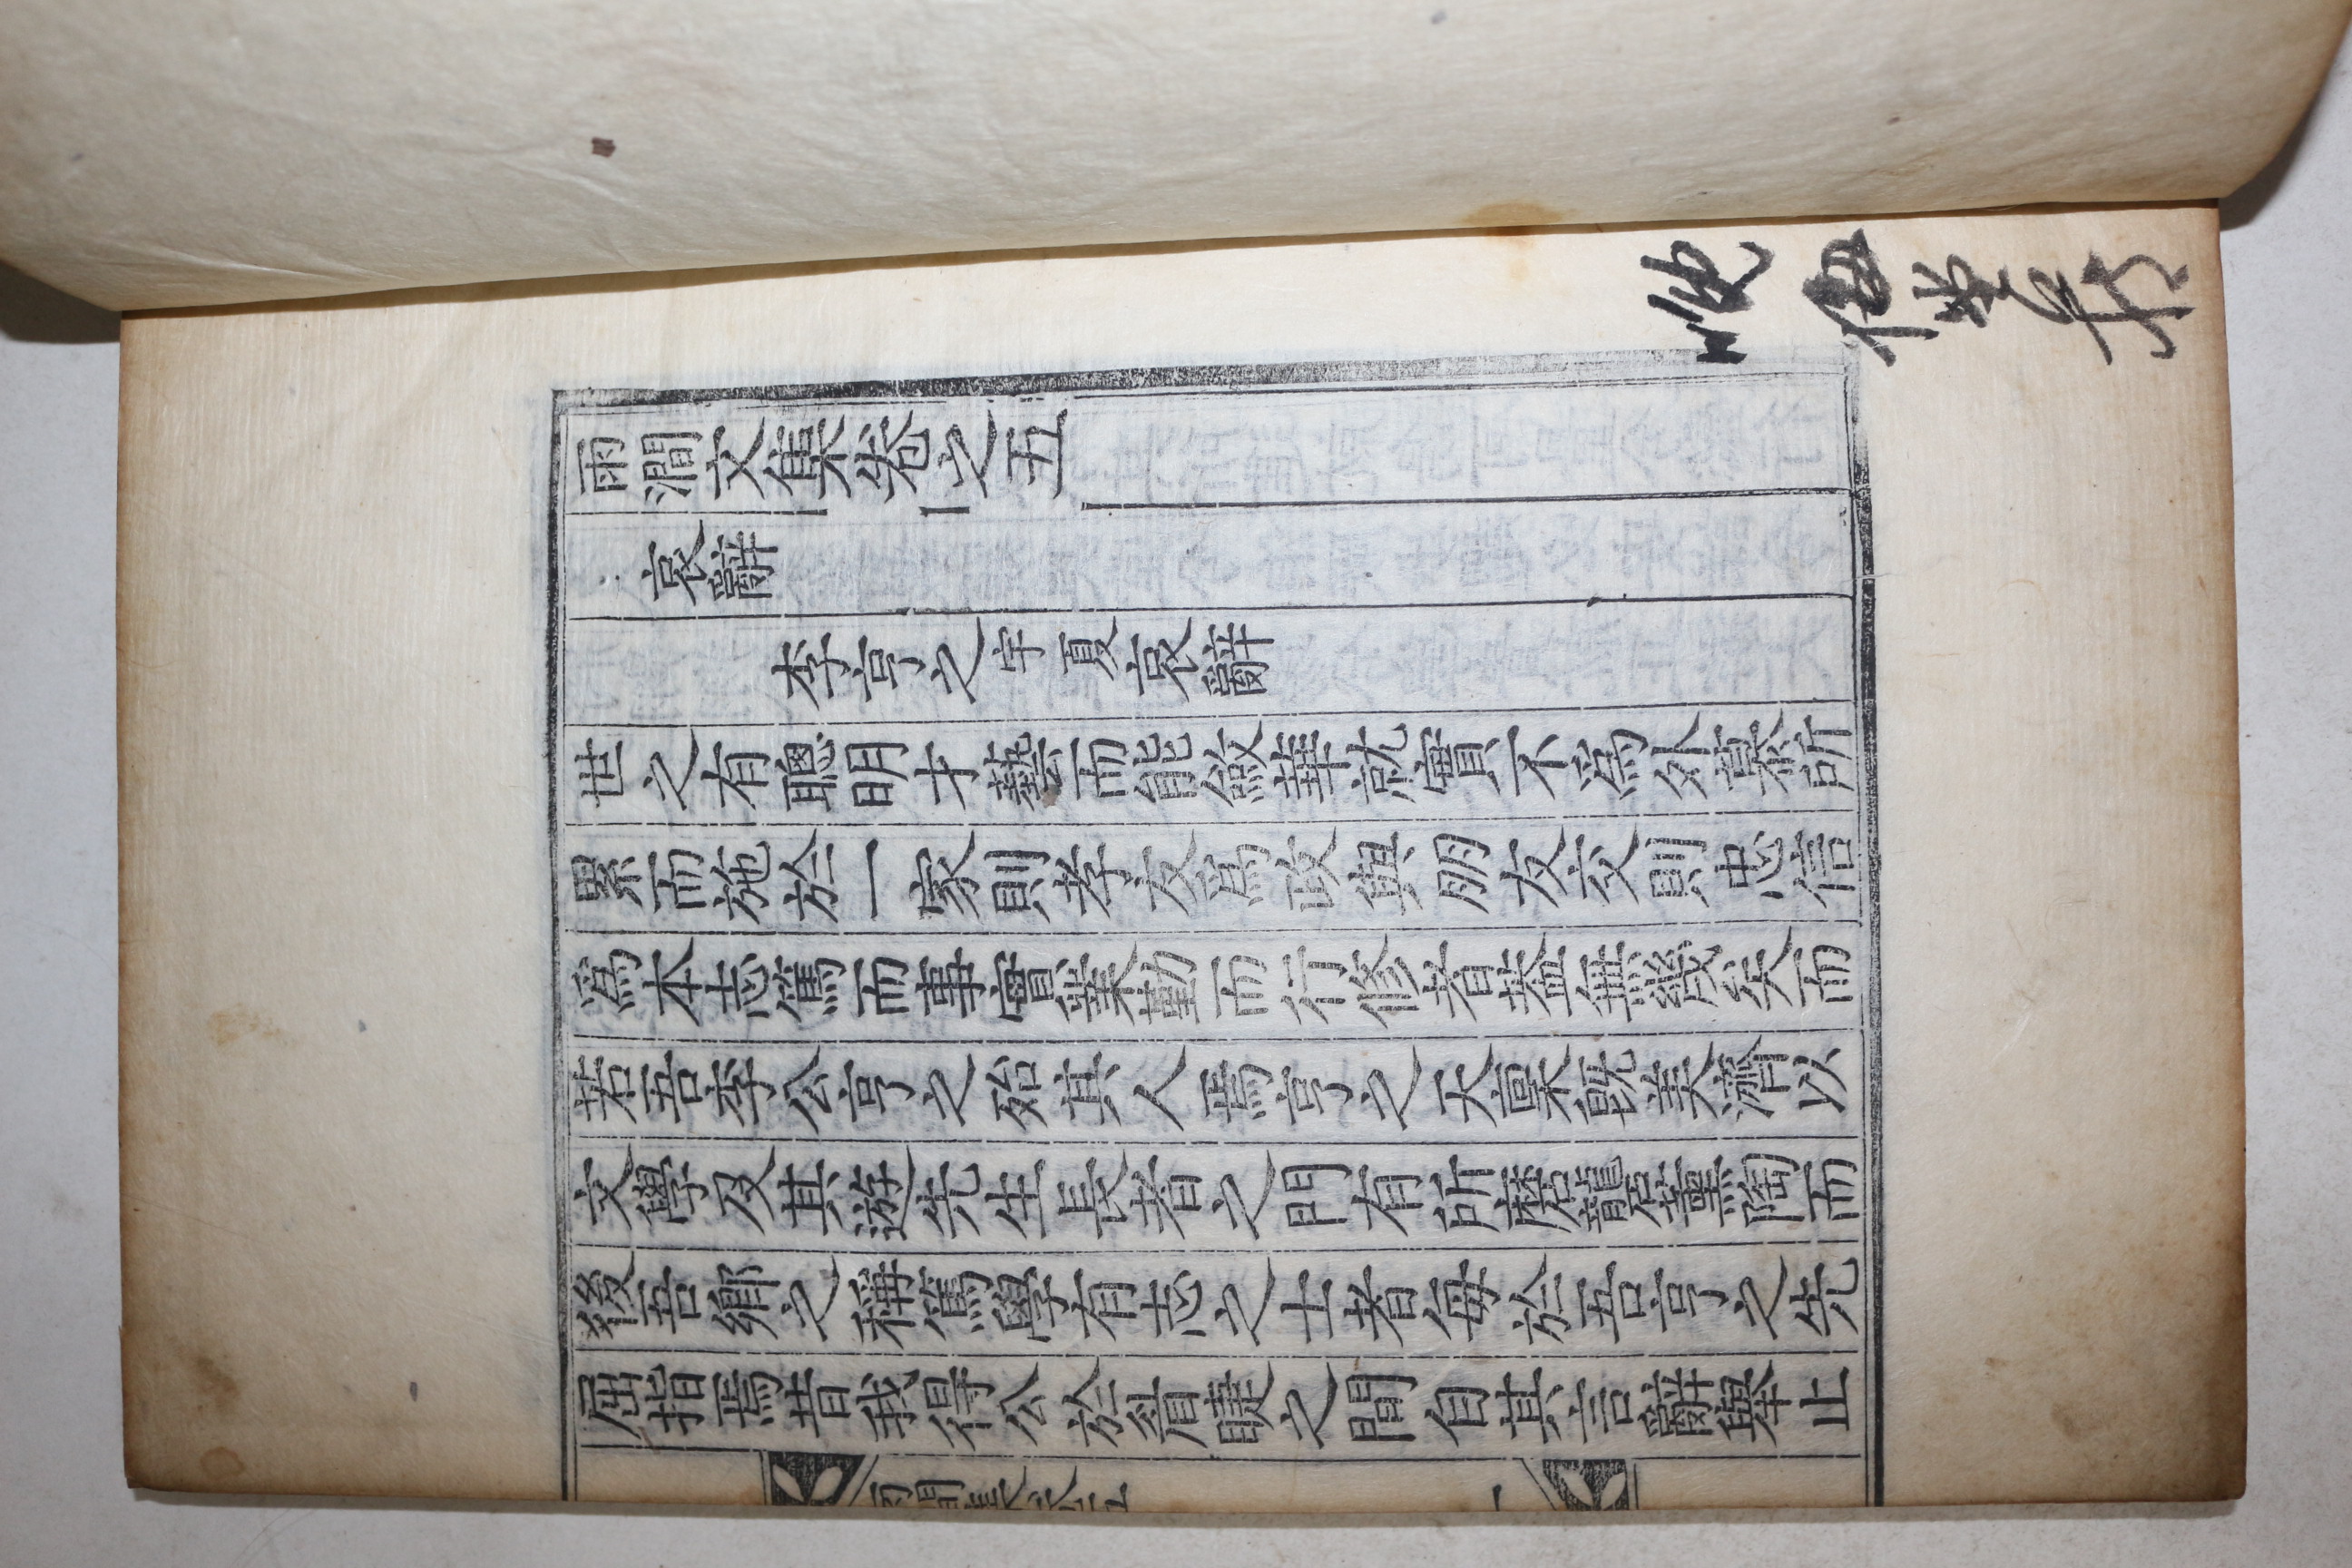 雨澗文集卷之五
哀辭
李亨之宇夏哀辭
世之有聰明才藝而能斂華就實不爲外慕所
累而施於一家則孝友爲政與朋友交則忠信
爲本志篤而事實業勤而行修者葢無幾矣而
若吾李公亨之殆其人焉亨之天稟旣美濟以
文學及其遊先生長者之門有所磨礱薰陶而
後吾鄉之稱篤學有志之士者每於吾亨之先
屈指焉昔我得公於眉睫之間自其言辭舉止
雨澗集卷五
一
晩梅堂藏